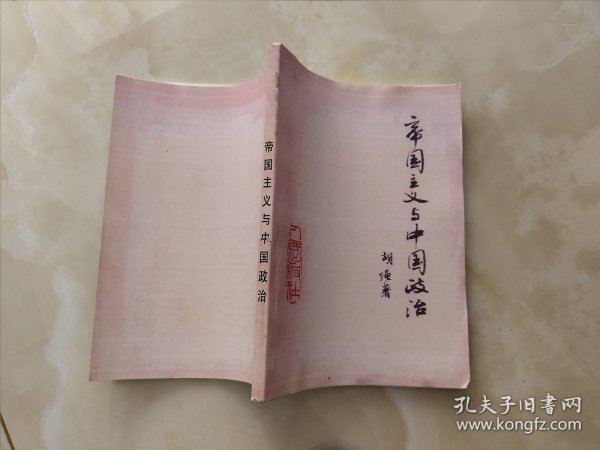 帝国主义与中国政治
胡绳著
帝国主义与中国政治
人民出版社
孔夫子旧书网
www.kongfz.com